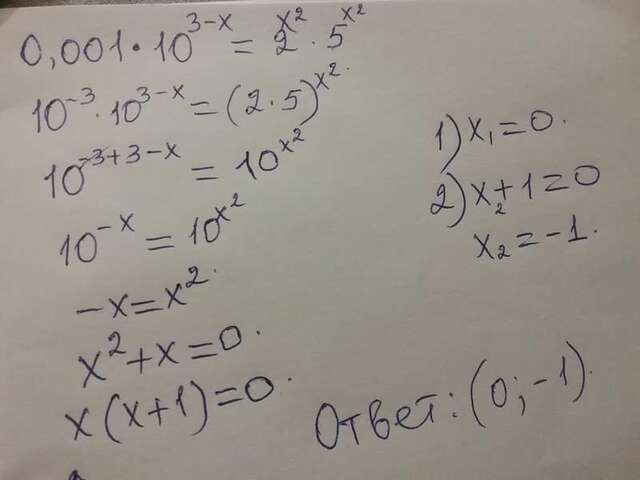 0,001·10^{3-x} = 2^{x^2}·5^{x^2}
10^{-3}·10^{3-x} = (2·5)^{x^2}.
10^{-3+3-x} = 10^{x^2}
10^{-x} = 10^{x^2}
-x = x^2.
x^2+x=0.
x(x+1)=0.
1) x_1=0.
2) x_2+1=0
x_2=-1.
Ответ: (0;-1).